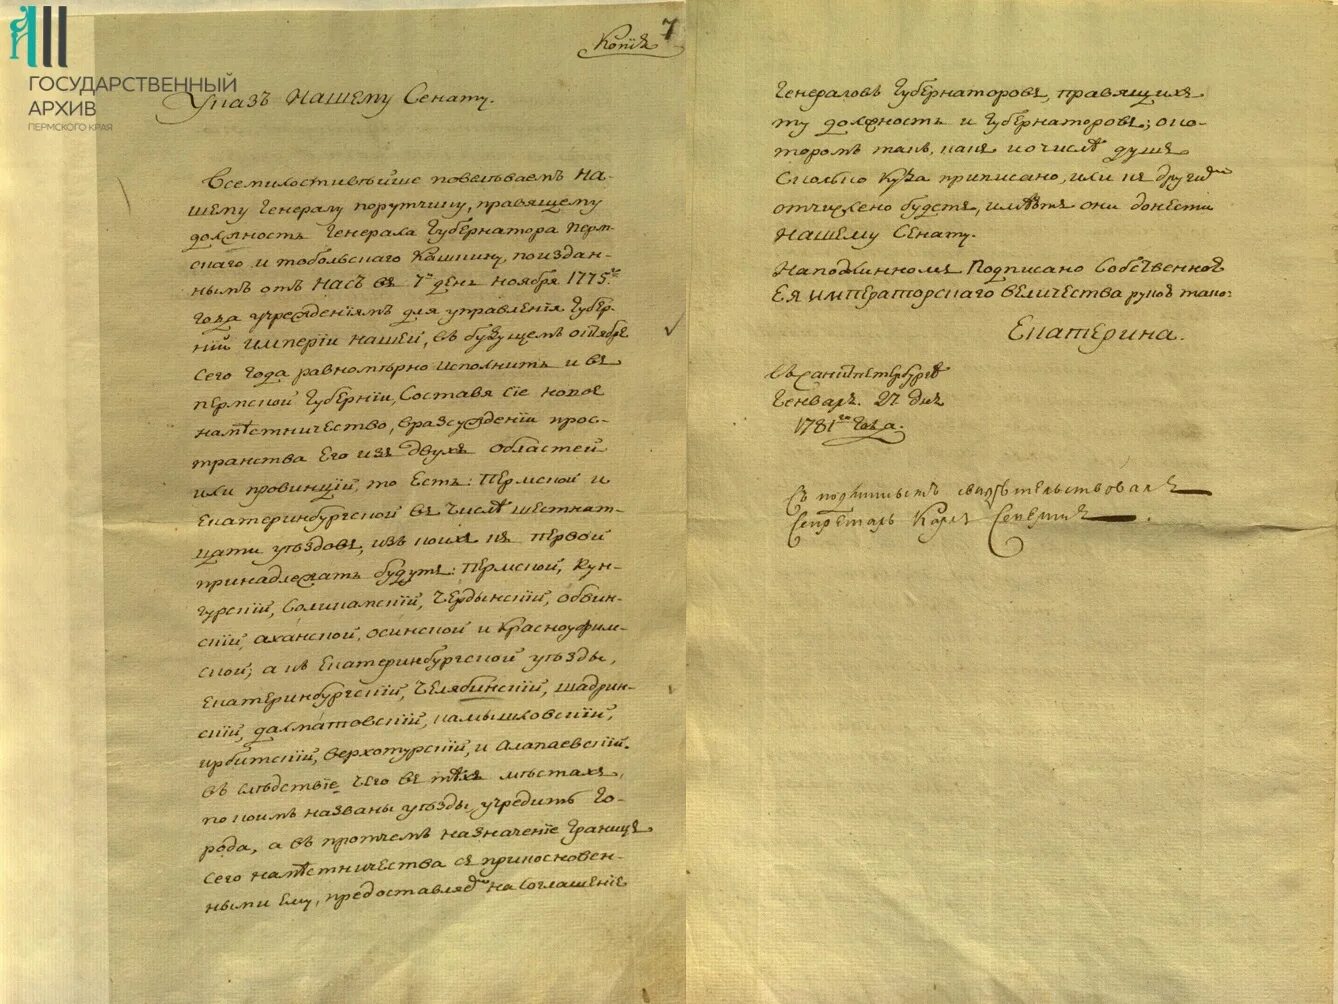 ГОСУДАРСТВЕННЫЙ
АРХИВ
ПЕРМСКОГО КРАЯ
7
Копія
Указъ Нашему Сенату.
Всемилостивѣйше повелѣваемъ На-
шему Генералу порутчику, правящему
должность Генерала Губернатора Перм-
скаго и тобольскаго Кашкину, по издан-
нымъ отъ Насъ въ 7 день ноября 1775
года учрежденіямъ для управленія Губер-
ній Имперіи Нашей, въ будущемъ октябрѣ
сего года равномѣрно исполнить и въ
пермской Губерніи, Составя сіе новое
намѣстничество, в разсужденіи прос-
транства Его изъ двухъ областей
или провинцій, то Есть: Пермской и
Екатеринбургской въ числѣ шестнат-
цати уѣздовъ, изъ коихъ къ первой
принадлежать будутъ: Пермской, Кун-
гурскій, Соликамскій, Чердынскій, Обвин-
скій, аханской, осинской и Красноуфим-
ской; а къ Екатеринбургской уѣзды,
Екатеринбургскій, Челябинскій, шадрин-
скій, далматовскій, камышловскій,
ирбитскій, верхотурскій, и Алапаевскій.
въ слѣдствіе чего въ тѣхъ мѣстахъ,
по коимъ названы уѣзды, учредить Го-
рода, а въ протчемъ назначеніе Границъ
сего намѣстничества съ прикосновен-
ными ему, предоставляемъ на Соглашеніе
Генераловъ Губернаторовъ, правящихъ
ту должность и Губернаторовъ; о ко-
торомъ такъ, какъ и о числѣ душъ
Сколько куда приписано, или къ другимъ
отчислено будетъ, имѣютъ они донести
Нашему Сенату.
На подлинномъ Подписано Собственною
Ея императорскаго величества рукою тако:
Екатерина.
въ санктпетербургѣ
Генваря 27 дня
1781 года.
Съ подлиннымъ свидѣтельствовалъ
Секретарь Карлъ